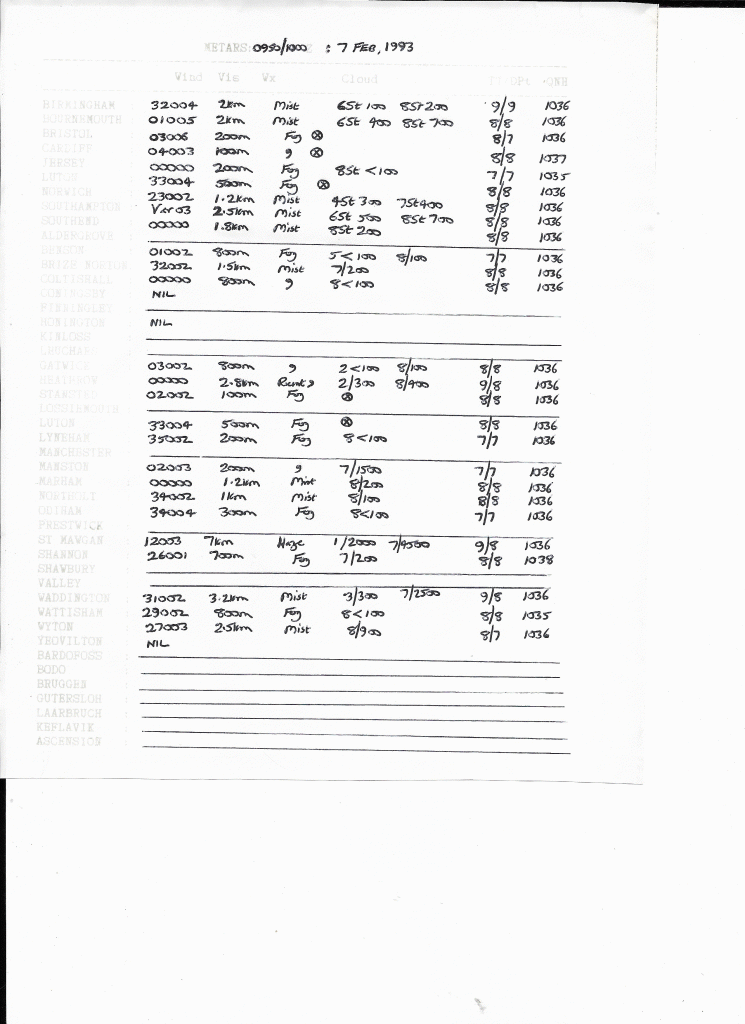 METARS: 0950/1000 : 7 FEB, 1993
Wind Vis Wx Cloud TT/DPt QNH
BIRMINGHAM : 32004 2km Mist 6St 100 8St 200 9/9 1036
BOURNEMOUTH : 01005 2km Mist 6St 400 8St 700 8/8 1036
BRISTOL : 03006 200m Fog ⊗ 8/7 1036
CARDIFF : 04003 100m " ⊗ 8/8 1037
JERSEY : 00000 200m Fog 8St <100 7/7 1035
LUTON : 33004 500m Fog ⊗ 8/8 1036
NORWICH : 23002 1.2km Mist 4St 300 7St 400 8/8 1036
SOUTHAMPTON : Var 03 2.5km Mist 6St 500 8St 700 8/8 1036
SOUTHEND : 00000 1.8km Mist 8St 200 8/8 1036
ALDERGROVE :
BENSON : 01002 800m Fog 5<100 8/100 7/7 1036
BRIZE NORTON : 32002 1.5km Mist 7/200 8/8 1036
COLTISHALL : 00000 800m " 8<100 8/8 1036
CONINGSBY : NIL
FINNINGLEY :
HONINGTON : NIL
KINLOSS :
LEUCHARS :
GATWICK : 03002 800m " 2<100 8/100 8/8 1036
HEATHROW : 00000 2.8km 2/300 8/400 9/8 1036
STANSTED : 02002 100m Fog ⊗ 8/8 1036
LOSSIEMOUTH :
LUTON : 33004 500m Fog ⊗ 8/8 1036
LYNEHAM : 35002 200m Fog 8<100 7/7 1036
MANCHESTER :
MANSTON : 02003 200m " 7/1500 7/7 1036
MARHAM : 00000 1.2km Mist 8/200 8/8 1036
NORTHOLT : 34002 1km Mist 8/100 8/8 1036
ODIHAM : 34004 300m Fog 8<100 7/7 1036
PRESTWICK :
ST MAWGAN : 12003 7km Haze 1/2000 7/4500 9/8 1036
SHANNON : 26001 700m Fog 7/200 8/8 1038
SHAWBURY :
VALLEY :
WADDINGTON : 31002 3.2km Mist 3/300 7/2500 9/8 1036
WATTISHAM : 29002 800m Fog 8<100 8/8 1035
WYTON : 27003 2.5km Mist 8/900 8/7 1036
YEOVILTON : NIL
BARDOFOSS :
BODO :
BRUGGEN :
GUTERSLOH :
LAARBRUCH :
KEFLAVIK :
ASCENSION :